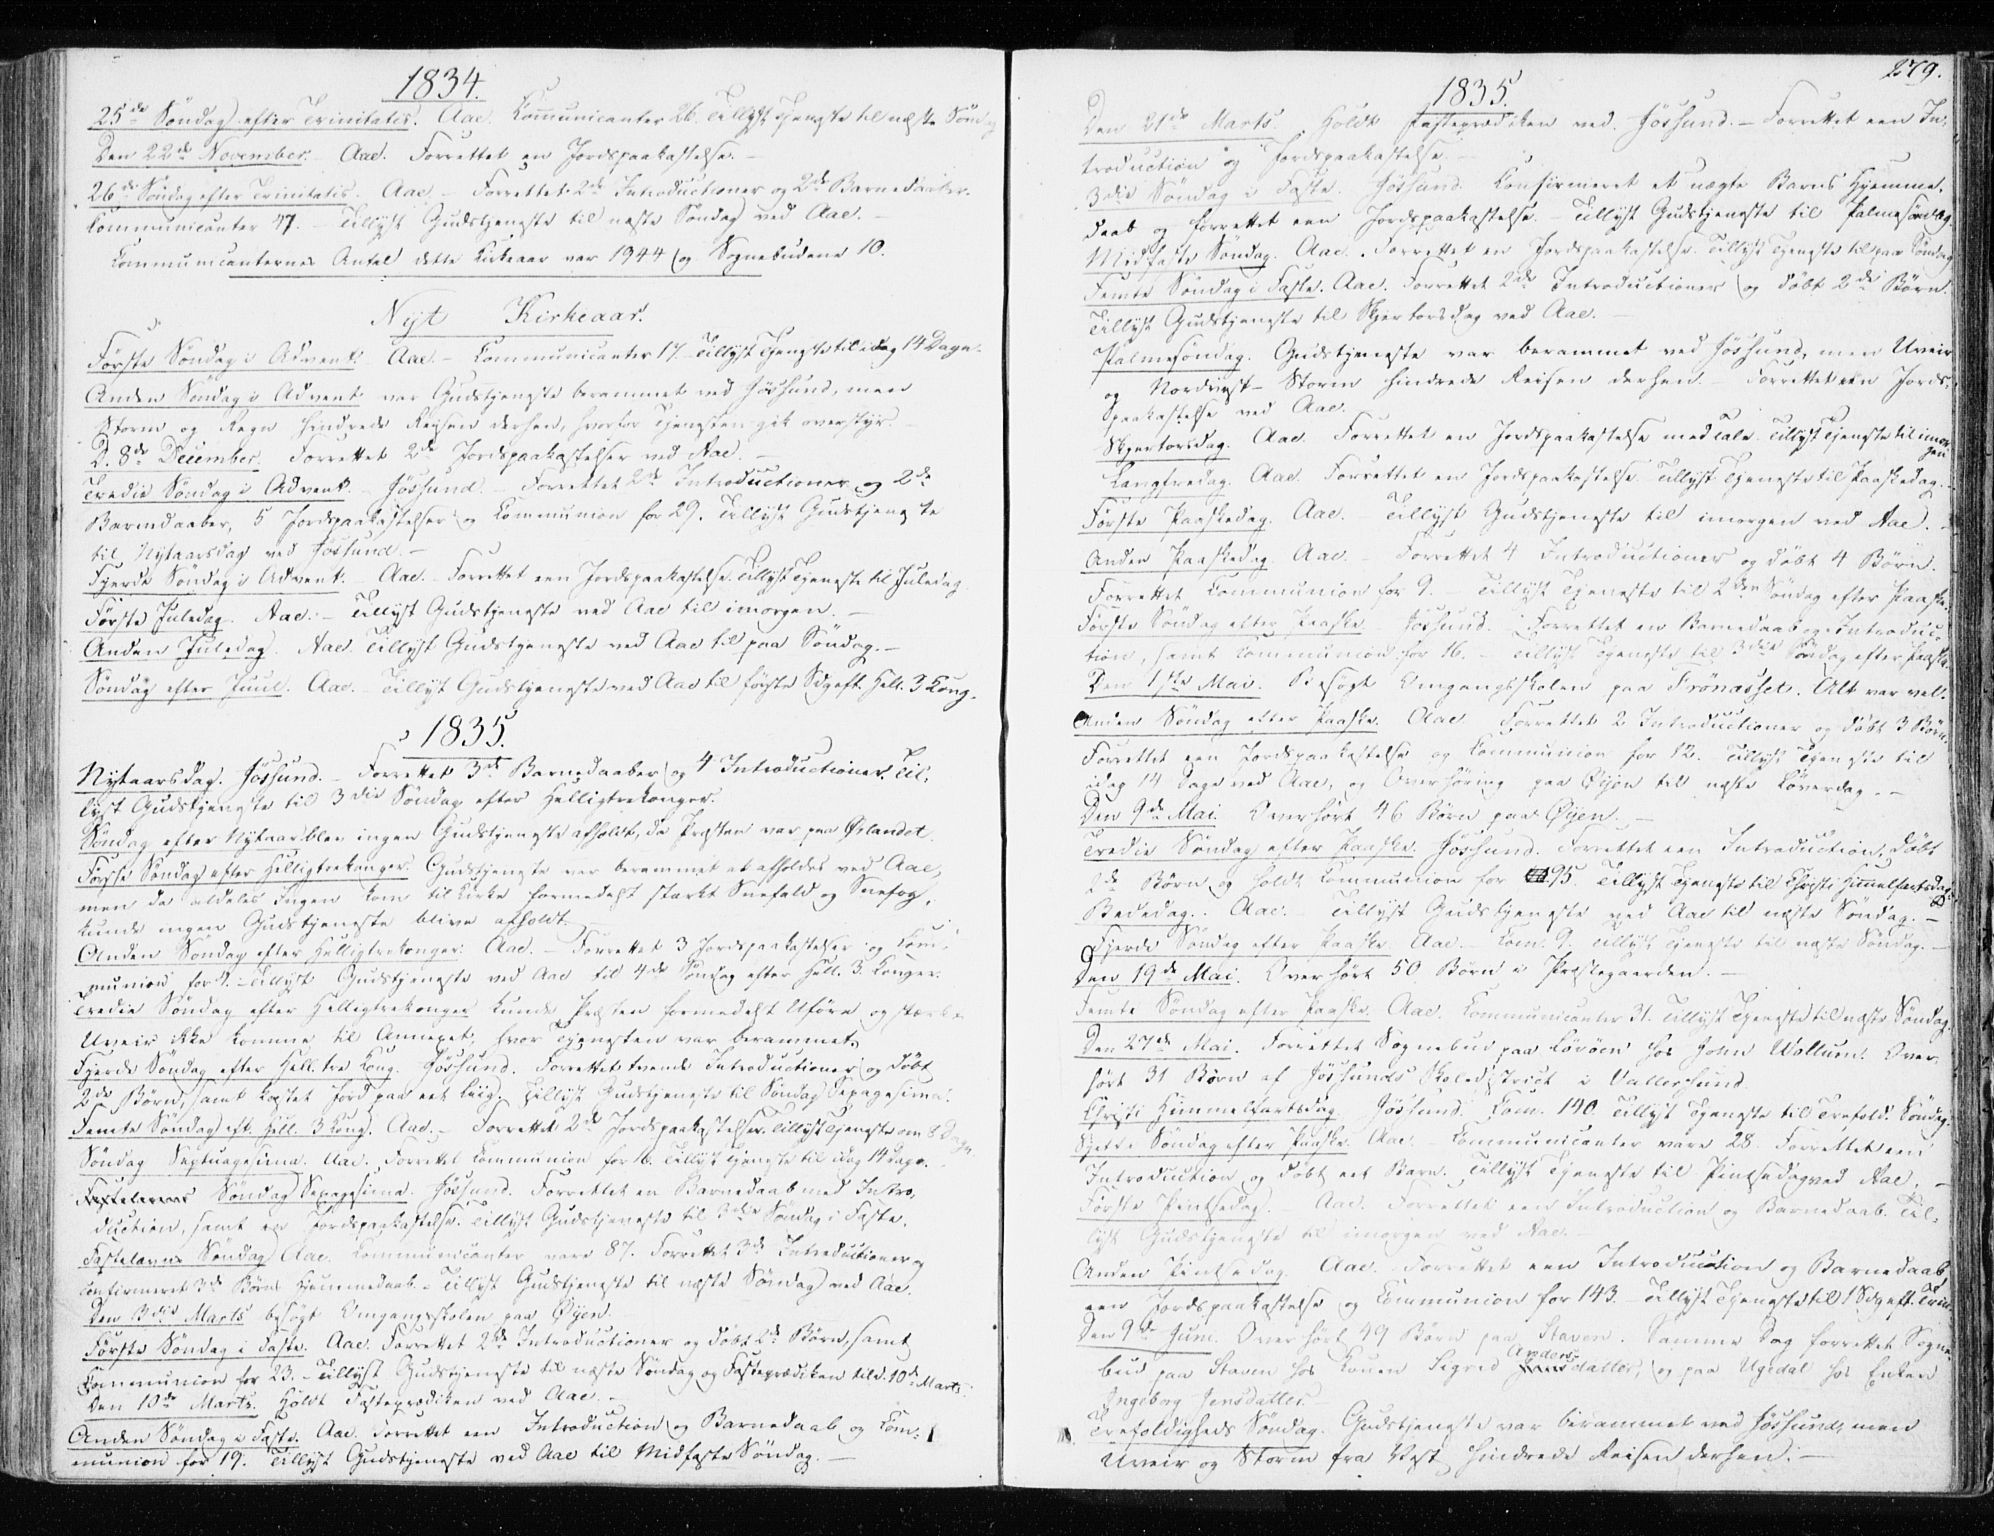 1834.
25de Søndag efter Trinitatis. Aae. Communicanter 26. Tillyst Tjeneste til næste Søndag
Den 22de November. Aae. Forrettet en Jordspaakastelse. –
26de Søndag efter Trinitatis. Aae. – Forrettet 2de Introductioner og 2de Barnedaaber.
Communicanter 47. – Tillyst Gudstjeneste til næste Søndag ved Aae. –
Communicanternes Antal dette Kirkeaar var 1944 og Sognebudene 10.
Nyt Kirkeaar.
Første Søndag i Advent. Aae. – Communicanter 17. Tillyst Tjeneste til idag 14 Dage.
Anden Søndag i Advent var Gudstjeneste berammet ved Jössund, men
Storm og Regn hindrede Reisen derhen, hvorfor Tjenesten gik overstyr. –
D. 8de December. Forrettet 2de Jordspaakastelser ved Aae. –
Tredie Søndag i Advent. – Jössund. – Forrettet 2de Introductioner og 2de
Barnedaaber, 5 Jordspaakastelser og Communion for 29. Tillyst Gudstjeneste
til Nytaarsdag ved Jössund. –
Fjerde Søndag i Advent. – Aae. – Forrettet een Jordspaakastelse. Tillyst Tjeneste til Juledag.
Første Juledag. Aae. – Tillyst Gudstjeneste ved Aae til imorgen. –
Anden Juledag. Aae. Tillyst Gudstjeneste ved Aae til paa Søndag. –
Søndag efter Juul. Aae. – Tillyst Gudstjeneste ved Aae til første Sdg eft. Hell. 3 Kong.
1835.
Nytaarsdag. Jössund. – Forrettet 3de Barnedaaber og 4 Introductioner. Til-
lyst Gudstjeneste til 3die Søndag efter Helligtrekonger.
Søndag efter Nytaar blev ingen Gudstjeneste afholdt, da Præsten var paa Ørlandet.
Første Søndag efter Helligtrekonger. Gudstjeneste var berammet at afholdes ved Aae,
men da aldeles Ingen kom til Kirke formedelst stærkt Sneefald og Sneefog,
kunde ingen Gudstjeneste blive afholdt.
Anden Søndag efter Helligtrekonger. Aae. – Forrettet 3 Jordspaakastelser og Com-
munion for 9. – Tillyst Gudstjeneste ved Aae til 4de Søndag efter Hell. 3 Konger.
Tredie Søndag efter Helligtrekonger kunde Præsten formedelst Uføre og stærk
Uveir ikke komme til Annexet, hvor Tjenesten var berammet.
Fjerde Søndag efter Hell. tre Kong. Jössund. Forrettet trende Introductioner og døbt
2de Børn, samt kastet Jord paa eet Liig. Tillyst Gudstjeneste til Søndag Sexagesima.
Femte Søndag eft. Hell. 3 Kong. Aae. – Forrettet 2de Jordspaakastelser. Tillyst Tjeneste om 8 Dage
Søndag Septuagesima. Aae. Forrettet Communion for 16. Tillyst Tjeneste til idag 14 Dage.
Fastelavns Søndag Sexagesima. Jössund. Forrettet en Barnedaab med Intro-
duction, samt en Jordspaakastelse. Tillyst Gudstjeneste til 3die Søndag i Faste.
Fastelavns Søndag. Aae. Communicanter vare 87. Forrettet 3de Introductioner og
confirmeret 3de Børns Hjemmedaab. – Tillyst Gudstjeneste til næste Søndag ved Aae.
Den 3die Marts besøgt Omgangsskolen paa Øyen.
Første Søndag i Faste. Aae. Forrettet 2de Introductioner og døbt 2de Børn, samt
Communion for 23. – Tillyst Gudstjeneste til næste Søndag og Fasteprædiken til d. 10de Marts.
Den 10de Marts. Holdt Fasteprædiken ved Aae. –
Anden Søndag i Faste. Aae. Forrettet een Introduction og Barnedaab og Com-
munion for 19. Tillyst Gudstjeneste ved Aae til Midfaste Søndag. –
279.
1835.
Den 21de Marts. Holdt Fasteprædiken ved Jössund. – Forrettet een In-
troduction og Jordspaakastelse. –
3die Søndag i Faste. Jössund. Confirmeret et uægte Barns Hjemme-
daab og forrettet een Jordspaakastelse. – Tillyst Gudstjeneste til Palmesøndag.
Midfaste Søndag. Aae. Forrettet en Jordspaakastelse. Tillyst Tjeneste til paa Søndag
Femte Søndag i Faste. Aae. Forrettet 2de Introductioner og døbt 2de Børn.
Tillyst Gudstjeneste til Skjertorsdag ved Aae. –
Palmesøndag. Gudstjeneste var berammet ved Jössund, men Uveir
og Nordvest-Storm hindrede Reisen derhen. – Forrettet een Jords-
paakastelse ved Aae.
Skjertorsdag. Aae. Forrettet en Jordspaakastelse med Tale. Tillyst Tjeneste til imor-
gen
Langfredag. Aae. Forrettet en Jordspaakastelse. Tillyst Tjeneste til Paaskedag. –
Første Paaskedag. Aae. – Tillyst Gudstjeneste til imorgen ved Aae. –
Anden Paaskedag. Aae. – Forrettet 4 Introductioner og døbt 4 Børn.
Forrettet Communion for 9. – Tillyst Tjeneste til 2den Søndag efter Paaske.
Første Søndag efter Paaske. Jössund. Forrettet en Barnedaab og Introduc-
tion, samt Communion for 16. – Tillyst Tjeneste til 3die Søndag efter Paaske.
Den 1ste Mai. Besøgt Omgangsskolen paa Frönæsset. Alt var vel.
Anden Søndag efter Paaske. Aae. Forrettet 2 Introductioner og døbt 3 Børn.
Forrettet een Jordspaakastelse og Communion for 12. Tillyst Tjeneste til
idag 14 Dage ved Aae, og Overhøring paa Øyen til næste Løverdag. –
Den 9de Mai. Overhørt 46 Børn paa Øyen. –
Tredie Søndag efter Paaske. Jössund. Forrettet een Introduction, døbt
2de Børn og holdt Communion for 95. Tillyst Tjeneste til Christi Himmelfartsdag.
Bededag. Aae. – Tillyst Gudstjeneste ved Aae til næste Søndag. –
Fjerde Søndag efter Paaske. Aae. – Com. 9. Tillyst Tjeneste til næste Søndag. –
Den 19de Mai. Overhørt 50 Børn i Præstegaarden. –
Femte Søndag efter Paaske. Aae. Communicanter 31. Tillyst Tjeneste til næste Søndag.
Den 27de Mai. Forrettet Sognebud paa Lövöen hos John Wollum. Over-
hørt 31 Børn af Jössunds Skoledistrict i Vallersund.
Christi Himmelfartsdag. Jössund. Com. 140. Tillyst Tjeneste til Trefold. Søndag.
Sjette Søndag efter Paaske. Aae. – Communicanter vare 28. Forrettet een
Introduction og døbt eet Barn. Tillyst Tjeneste til Pintsedag ved Aae. –
Første Pintsedag. Aae. Forrettet een Introduction og Barnedaab. Til-
lyst Gudstjeneste til imorgen ved Aae. –
Anden Pintsedag. Aae. Forrettet een Introduction og Barnedaab
een Jordspaakastelse og Communion for 143. – Tillyst Tjeneste til 1 Sdg eft. Trin.
Den 9de Juni. Overhørt 49 Børn paa Staven. Samme Dag forrettet Sogne-
bud paa Staven hos Konen Sigrid Anders datter, og paa Ugedal hos Enken
Ingeborg Jensdatter.
Trefoldigheds Søndag. Gudstjeneste var berammet ved Jössund, men
Uveir og Storm fra Vest hindrede Reisen derhen. –